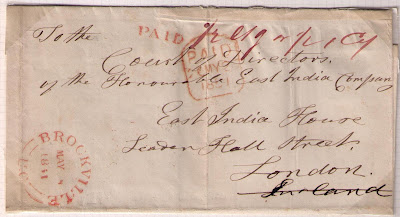 PAID
To the
Court of Directors.
of the Honourable East India Company
East India House
Leaden Hall Street.
London.
England
PAID
BROCKVILLE
MAY
1841